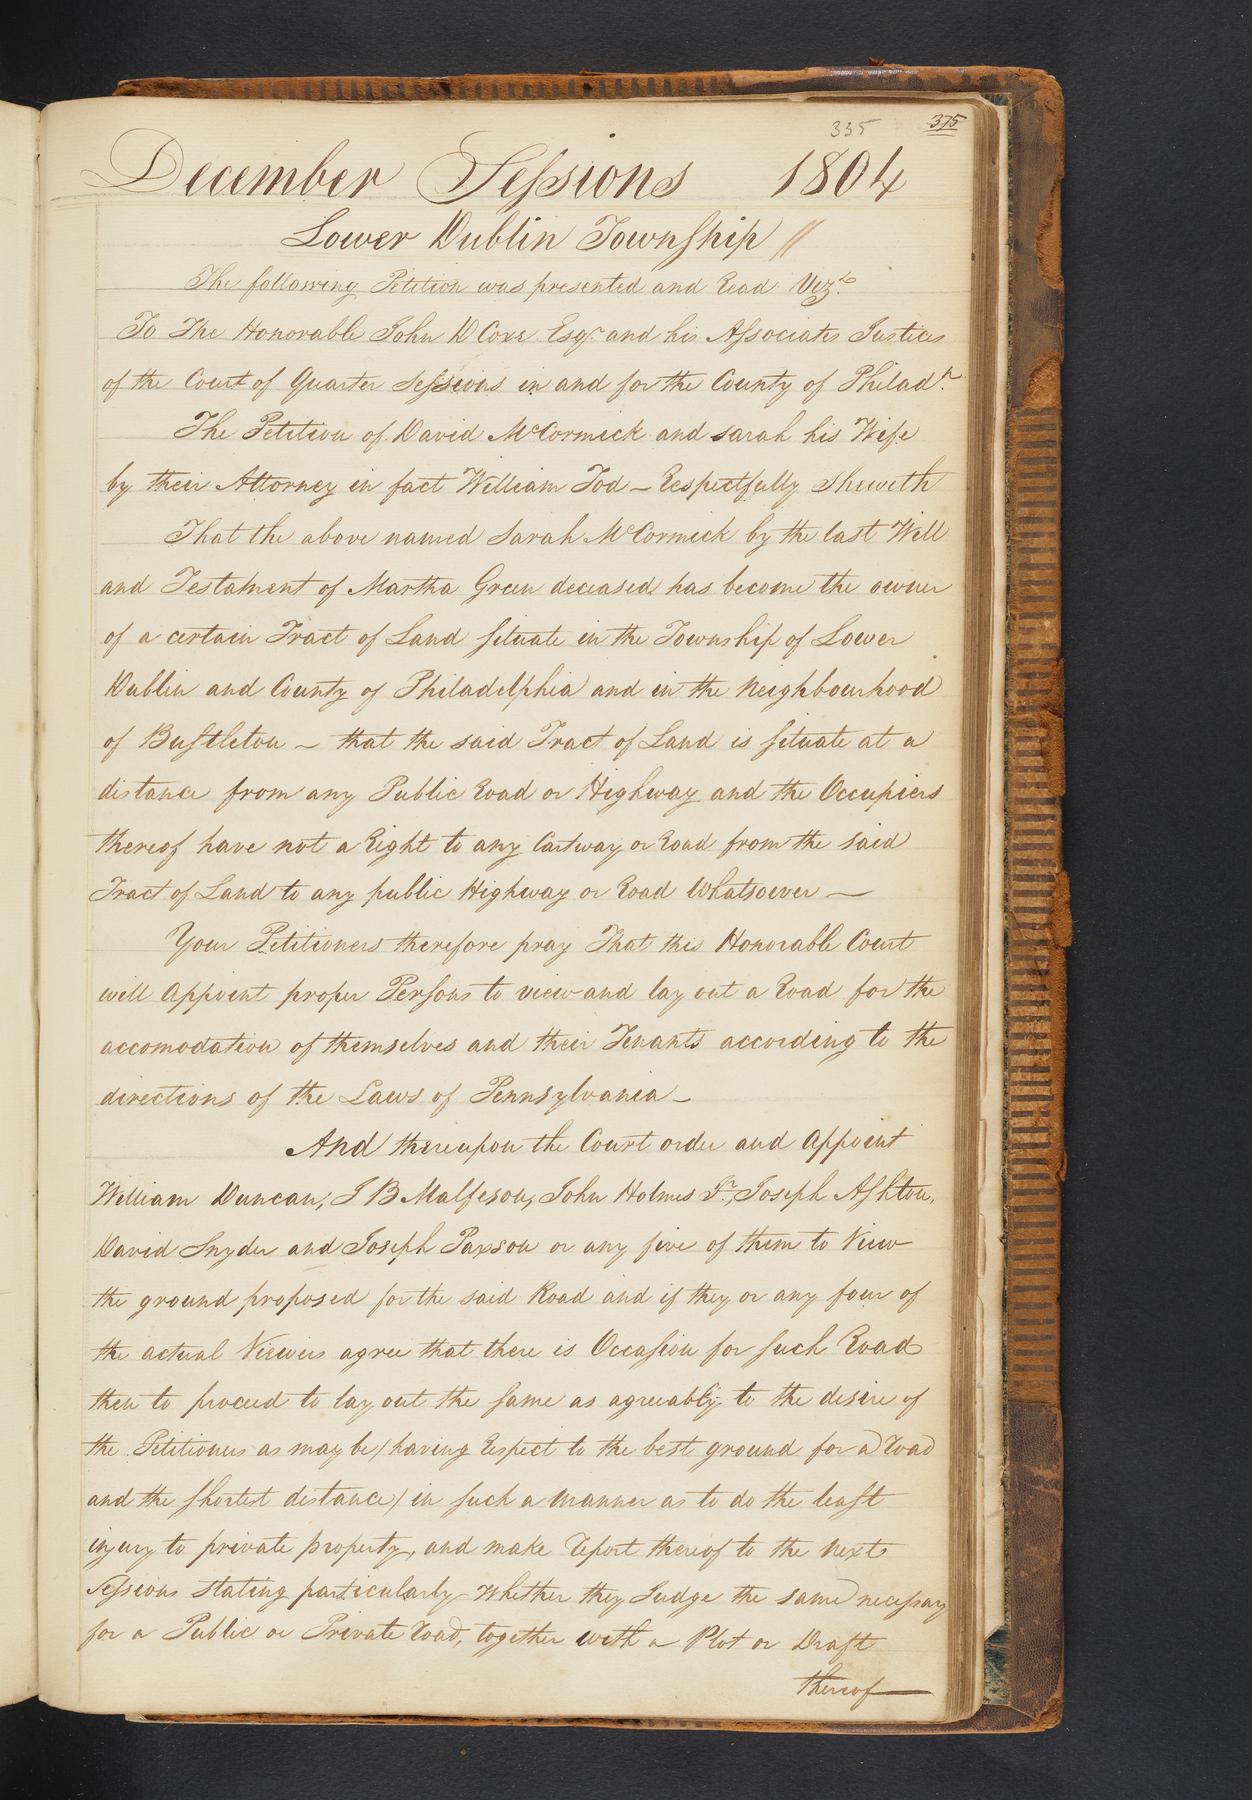 335 375
December Sessions 1804
Lower Dublin Township //
The following Petition was presented and Read Vizt.
To The Honorable John D Coxe Esqr. and his Associates Justices
of the Court of Quarter Sessions in and for the County of Philada.
The Petition of David McCormick and Sarah his Wife
by their Attorney in fact William Tod – Respectfully Sheweth
That the above named Sarah McCormick by the last Will
and Testament of Martha Green deceased has become the owner
of a certain Tract of Land Situate in the Township of Lower
Dublin and County of Philadelphia and in the Neighbourhood
of Bustleton – that the said Tract of Land is situate at a
distance from any Public Road or Highway and the Occupiers
thereof have not a Right to any Cartway or Road from the said
Tract of Land to any public Highway or Road Whatsoever –
Your Petitioners therefore pray That this Honorable Court
will Appoint proper Persons to view and lay out a Road for the
accomodation of themselves and their Tenants according to the
directions of the Laws of Pennsylvania –
And thereupon the Court order and Appoint
William Duncan, J B Malferson, John Holmes Jr., Joseph Ashton,
David Snyder and Joseph Paxson or any five of them to View
the ground proposed for the said Road and if they or any four of
the actual Viewers agree that there is Occasion for such Road
then to proceed to lay out the same as agreeably to the desire of
the Petitioners as may be (having Respect to the best ground for a Road
and the shortest distance) in such a Manner as to do the least
injury to private property, and make Report thereof to the next
Sessions stating particularly Whether they Judge the same necessary
for a Public or Private Road, together with a Plot or Draft
thereof –